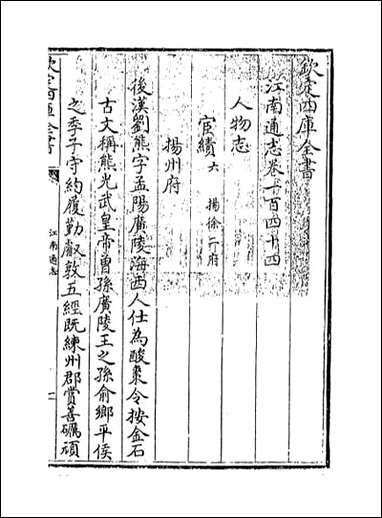 欽定四庫全書
江南通志卷一百四十四
人物志
宦績六 揚徐二府
揚州府
後漢劉熊字孟陽廣陵海西人仕為酸棗令按金石
古文稱熊光武皇帝曾孫廣陵王之孫俞鄉平侯
之季子守約履勤叡敦五經既練州郡賞善礪頑
欽定四庫全書
江南通志
一